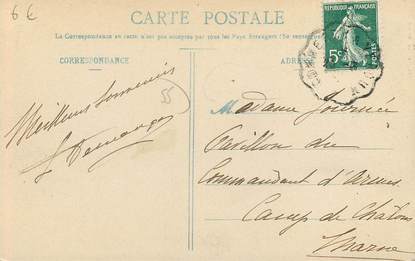 6 €
CARTE POSTALE
La Correspondance au recto n'est pas acceptée par tous les Pays Etrangers (Se renseigner
CORRESPONDANCE
ADRE
RÉPUBLIQUE FRANÇAISE
5c
POSTES
55
Meilleurs souvenirs
Madame Journée
Pavillon du
Commandant d'Armes
Camp de Châlons
Marne